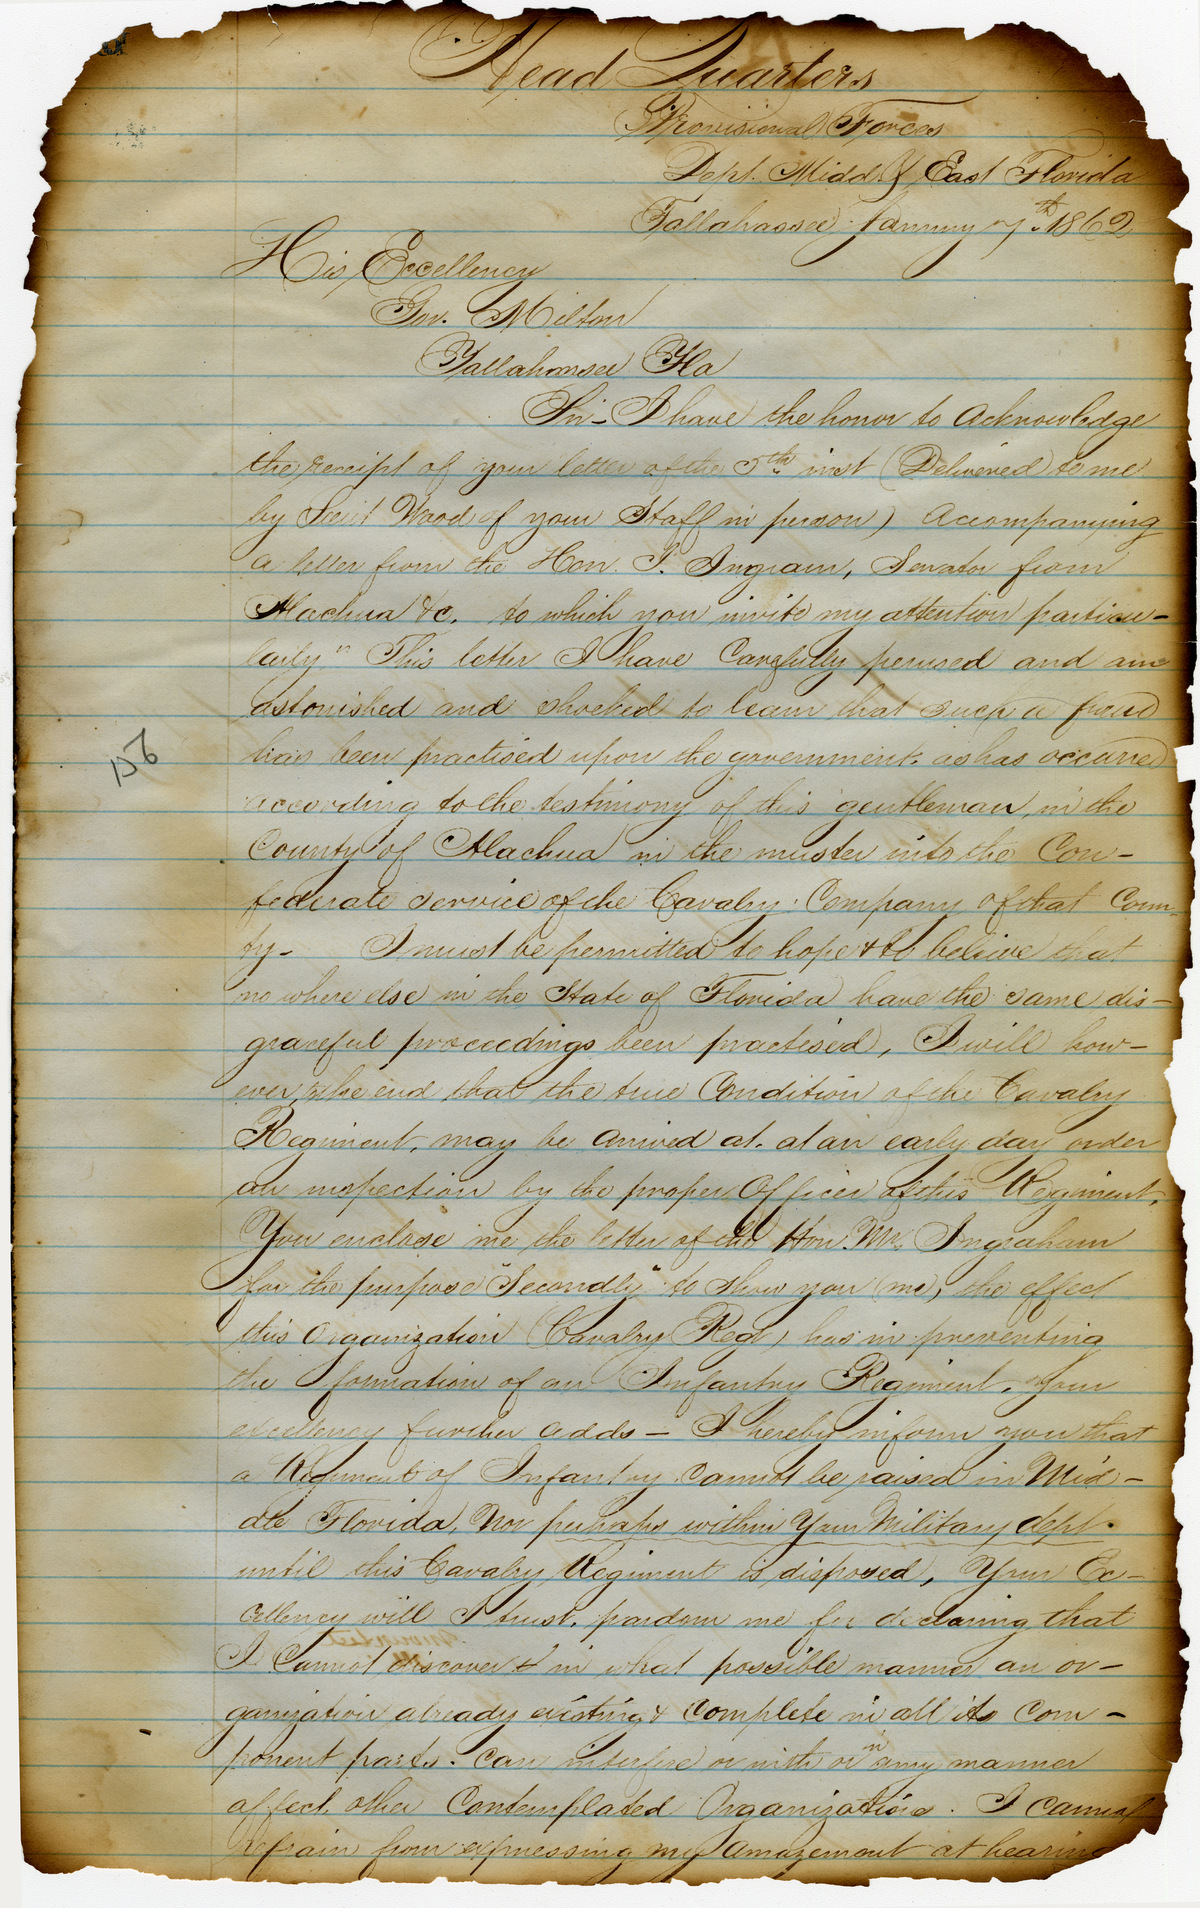 Head Quarters
Provisional Forces
Dept. Midd & East Florida
Tallahassee January 7th 1862
His Excellency
Gov. Milton
Tallahassee Fla
Sir - I have the honor to acknowledge
the receipt of your letter of the 5th inst (Delivered to me
by Lieut Wood of your Staff in person) accompanying
a letter from the Hon. T. Ingram, Senator from
Alachua &c. to which you invite my attention particu-
larly" This letter I have Carefully perused and am
astonished and shocked to learn that such a fraud
has been practised upon the government. as has occurred
according to the testimony of this gentleman, in the
County of Alachua in the muster into the Con-
federate service of the Cavalry Company of that Coun-
ty - I must be permitted to hope & to believe that
no where else in the State of Florida have the same dis-
graceful proceedings been practised, I will how-
ever, to the end that the true Condition of the Cavalry
Regiment, may be arrived at. at an early day order
an inspection by the proper Officer of this Regiment.
You enclose me the letter of the Hon. Mr. Ingraham
for the purpose "Secondly" to show you (me), the effect
this Organization (Cavalry Regt) has in preventing
the formation of an Infantry Regiment. Your
excellency further adds - I hereby inform you that
a Regiment of Infantry cannot be raised in Mid-
dle Florida, Nor perhaps within Your Military dept.
until this Cavalry Regiment is disposed, Your Ex-
cellency will I trust, pardon me for declaring that
I Cannot discover in what possible manner an or-
ganization already existing & complete in all its com-
ponent parts. can interfere or with or in any manner
affect other Contemplated Organizations. I cannot
refrain from expressing my amazement at hearing
156